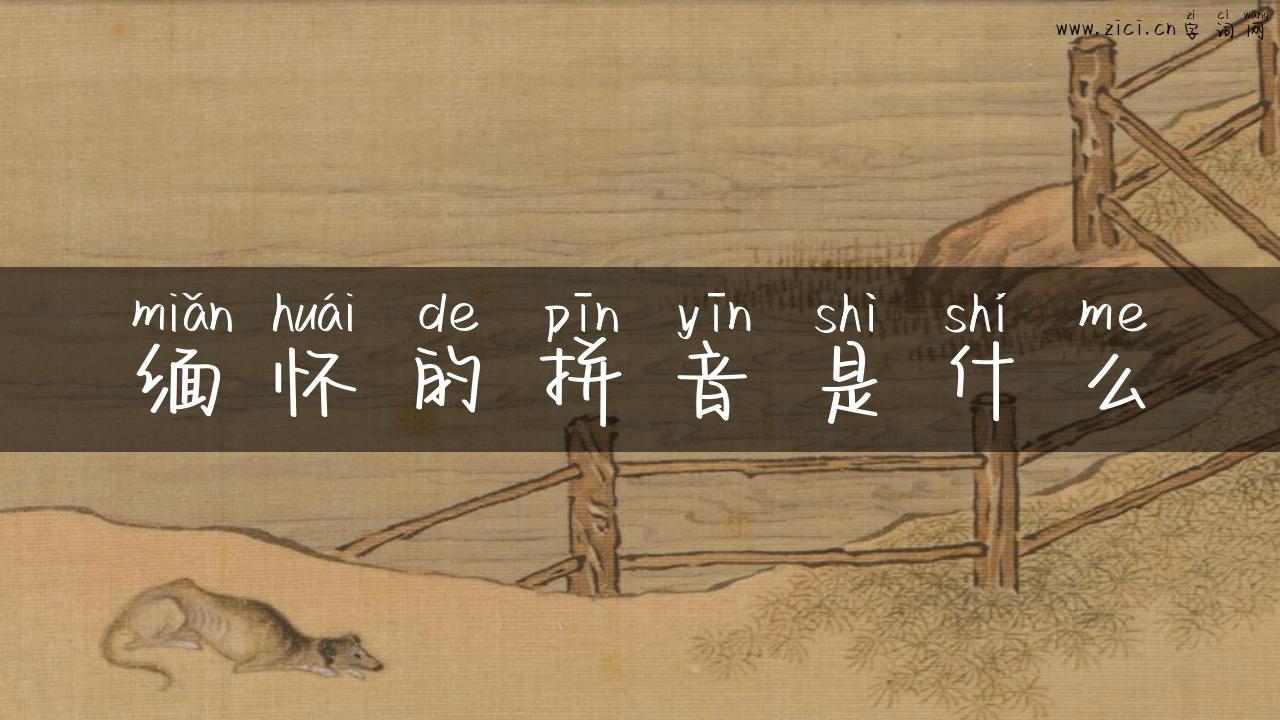 zì cí wǎng
www.zici.cn字词网
miǎn huái de pīn yīn shì shí me
缅怀的拼音是什么